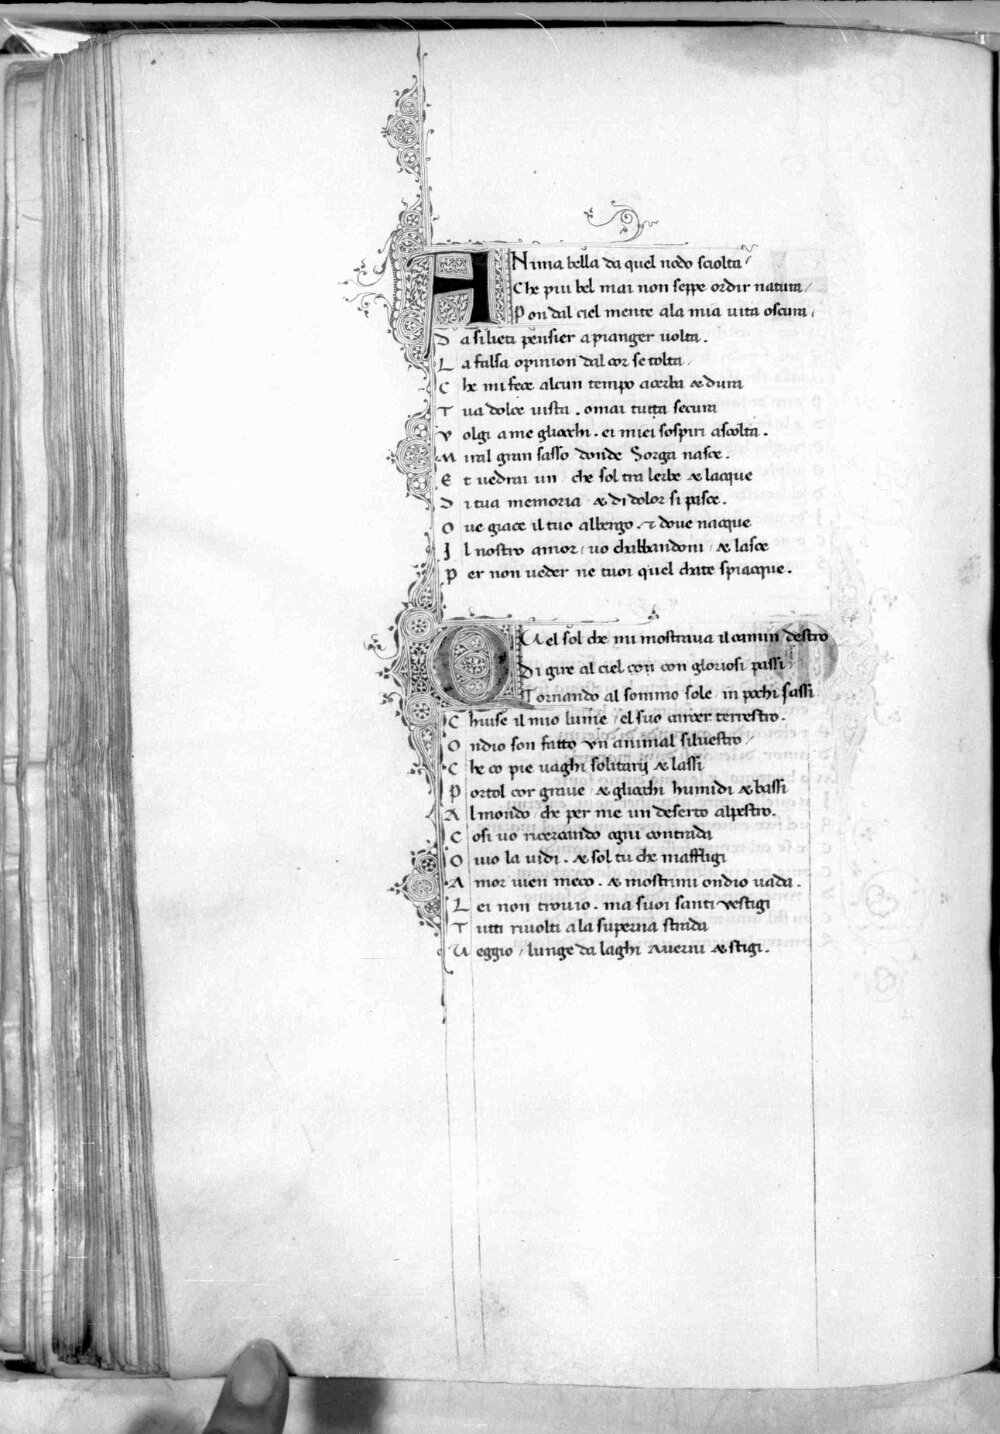 ANima bella da quel nodo sciolta /
Che piu bel mai non seppe ordir natura /
Pon dal ciel mente ala mia uita oscura /
Da si lieti pensier a pianger uolta .
La falsa opinion dal cor se tolta /
Che mi fece alcun tempo acerba & dura
Tua dolce uista . omai tutta secura
Volgi a me gliocchi . ei miei sospiri ascolta .
Miral gran sasso donde Sorga nasce .
Et uedrai un / che sol tra lerbe & lacque
Di tua memoria & di dolor si pasce .
Oue giace il tuo albergo . & doue nacque
Il nostro amor / uo chabbandoni / & lasce
Per non ueder ne tuoi quel chate spiacque .
QVel sol che mi mostraua il camin destro
Di gire al ciel con con gloriosi passi /
Tornando al sommo sole in pochi sassi
Chiuse il mio lume / el suo carcer terrestro .
Ondio son fatto vn animal siluestro /
Che co pie uaghi solitarij & lassi
Portol cor graue & gliocchi humidi & bassi
Al mondo / che per me un deserto alpestro .
Cosi uo ricercando ogni contrada
Ouio la uidi . & sol tu che maffligi
Amor uien meco . & mostrimi ondio uada .
Lei non trouio . ma suoi santi vestigi
Tutti riuolti ala superna strada
Veggio / lunge da laghi auerni & stigi .